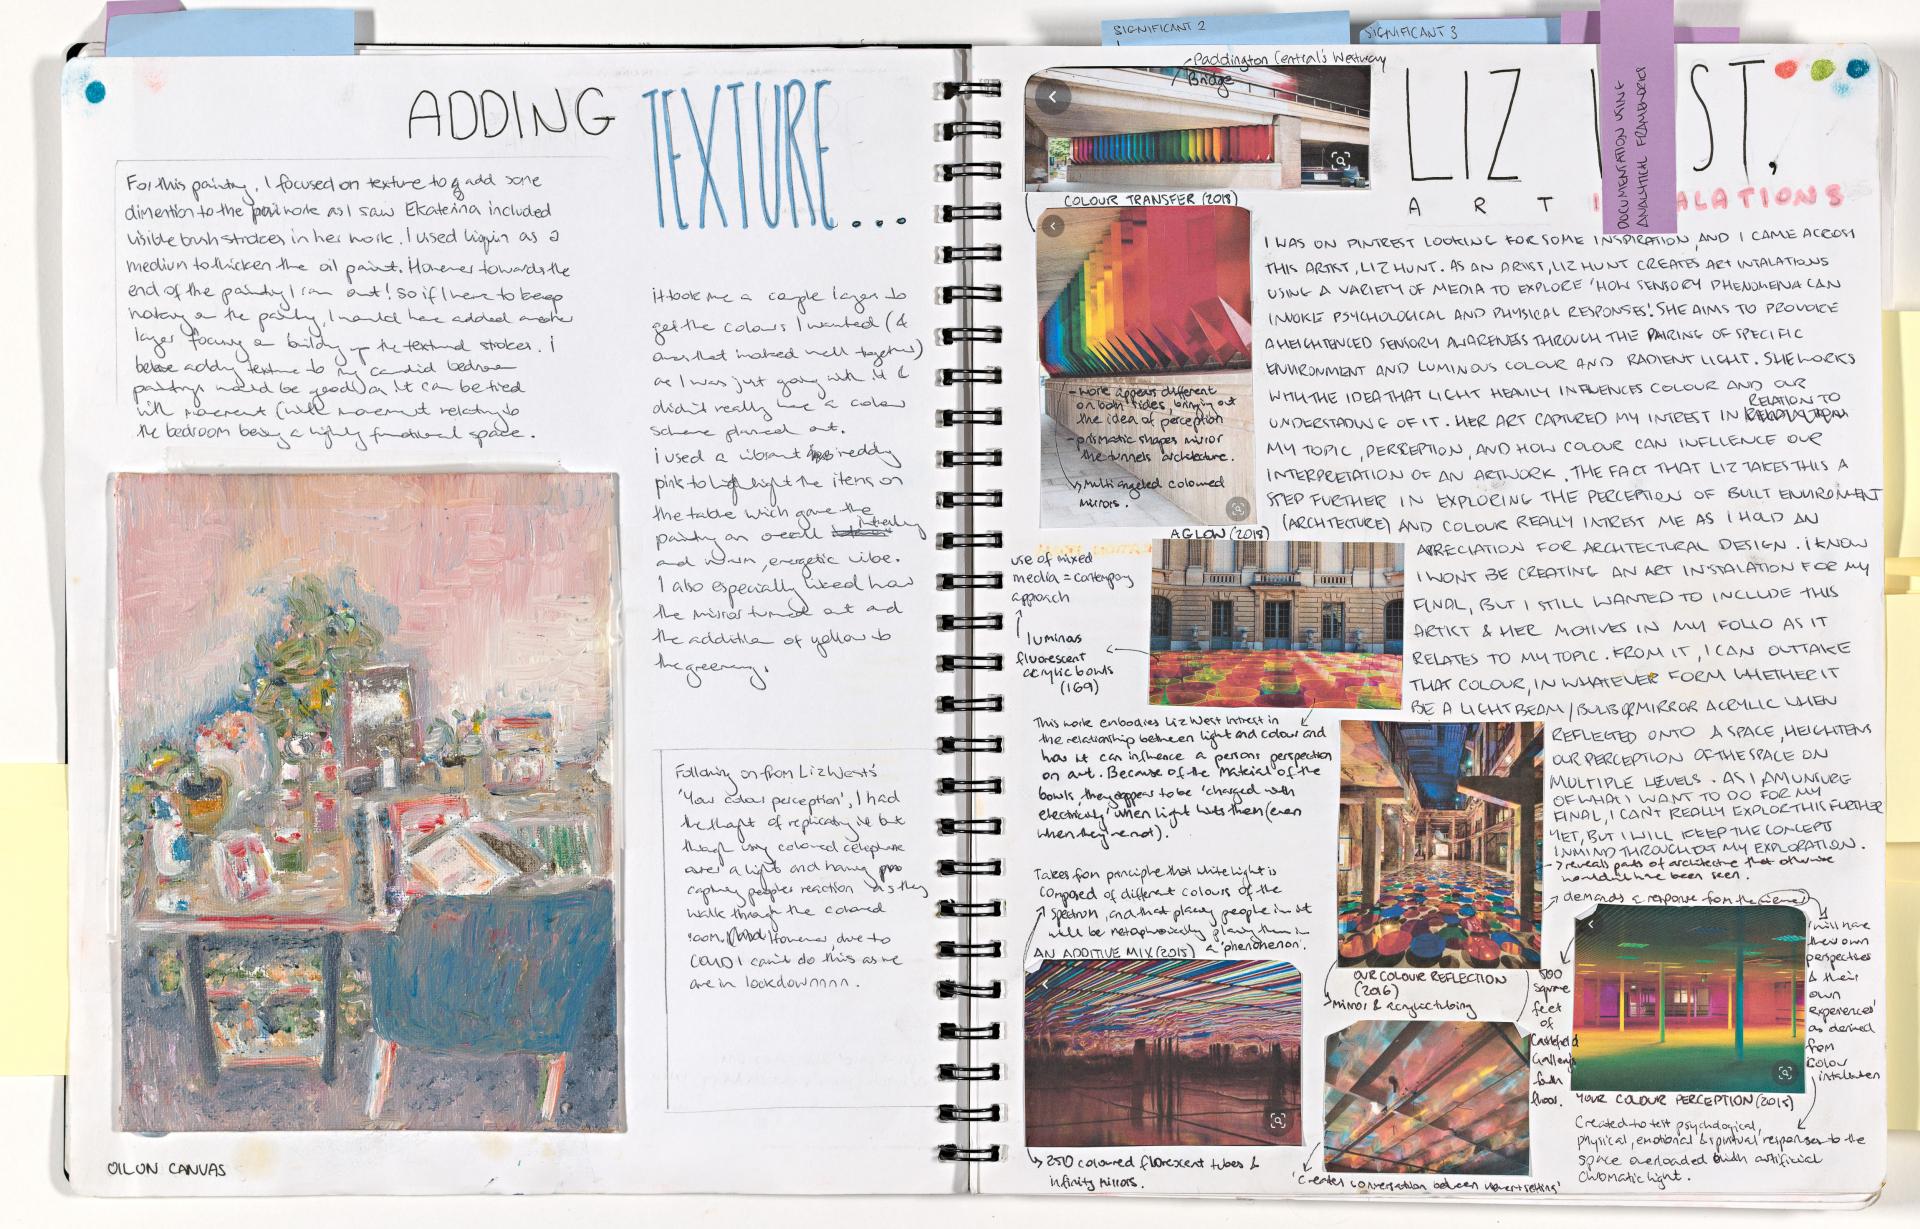 ADDING TEXTURE...
For this painting, I focused on texture to add some
dimention to the work as I saw Ekaterina included
visible brush strokes in her work. I used liquin as a
medium to thicken the oil paint. However towards the
end of the painting I ran out! So if I were to keep
working on the painting, I would have added another
layer focusing on building up the textural strokes. I
believe adding texture to my candid bedroom
paintings would be good as it can be tied
with movement (with movement relating to
the bedroom being a highly functional space.
OIL ON CANVAS
it took me a couple layers to
get the colours I wanted (&
ones that worked well together)
as I was just going with it &
didn't really have a colour
scheme planned out.
i used a vibrant reddy
pink to highlight the items on
the table wich gave the
painting an overall interesting
and warm, energetic vibe.
I also especially liked how
the mirror turned out and
the addition of yellow to
the greenery.
Following on from Liz Wests'
'Your colour perception', I had
the thought of replicating it but
though using coloured celophane
over a light and having
capturing peoples reaction as they
walk through the colored
room. However, due to
COVID I can't do this as we
are in lockdownnnn.
SIGNIFICANT 2
SIGNIFICANT 3
DOCUMENTATION USING
ANALYTICAL FRAMEWORKS
LIZ W ST,
ART I ALATIONS
Paddington Central's Westway
Bridge
COLOUR TRANSFER (2018)
- work appears different
on both sides, bringing out
the idea of perception
- prismatic shapes mirror
the tunnels architecture.
Multi angeled coloured
mirrors.
I WAS ON PINTREST LOOKING FOR SOME INSPIRATION, AND I CAME ACROSS
THIS ARTIST, LIZ HUNT. AS AN ARTIST, LIZ HUNT CREATES ART INTALATIONS
USING A VARIETY OF MEDIA TO EXPLORE 'HOW SENSORY PHENOMENA CAN
INVOKE PSYCHOLOGICAL AND PHYSICAL RESPONSES'. SHE AIMS TO PROVOKE
A HEIGHTENED SENSORY AWARENESS THROUGH THE PAIRING OF SPECIFIC
ENVIRONMENT AND LUMINOUS COLOUR AND RADIENT LIGHT. SHE WORKS
WITH THE IDEA THAT LIGHT HEAVILY INFLUENCES COLOUR AND OUR
UNDERSTADING OF IT. HER ART CAPTURED MY INTREST IN RELATION TO
MY TOPIC, PERSCEPTION, AND HOW COLOUR CAN INFLUENCE OUR
INTERPRETATION OF AN ARTWORK. THE FACT THAT LIZ TAKES THIS A
STEP FURTHER IN EXPLORING THE PERCEPTION OF BUILT ENVIROMENT
(ARCHITECTURE) AND COLOUR REALLY INTREST ME AS I HOLD AN
APRECIATION FOR ARCHITECTURAL DESIGN. I KNOW
I WONT BE CREATING AN ART INSTALATION FOR MY
FINAL, BUT I STILL WANTED TO INCLUDE THIS
ARTIST & HER MOTIVES IN MY FOLIO AS IT
RELATES TO MY TOPIC. FROM IT, I CAN OUTTAKE
THAT COLOUR, IN WHATEVER FORM WHETHER IT
BE A LIGHT BEAM / BULB OR MIRROR ACRYLIC WHEN
REFLECTED ONTO A SPACE, HEIGHTENS
OUR PERCEPTION OF THE SPACE ON
MULTIPLE LEVELS. AS I AM UNSURE
OF WHAT I WANT TO DO FOR MY
FINAL, I CAN'T REALLY EXPLOR THIS FURTHER
YET, BUT I WILL KEEP THE CONCEPT
IN MIND THROUGHOUT MY EXPLORATION.
AGLOW (2018)
use of mixed
media = contempary
approach
luminous
fluorescent
acrylic bowls
(169)
This work embodies Liz West intrest in
the relationship between light and colour and
how it can influence a persons perspection
on art. Because of the material of the
bowls, they appear to be 'charged with
electricity' when light huts them (even
when they're not).
Takes from principle that white light is
composed of different colours of the
spectrum, and that placing people in it
will be metaphorically placing them in
a 'phenomenon'.
AN ADDITIVE MIX (2015)
250 coloured florescent tubes &
infinity mirrors.
reveals parts of architecture that otherwise
wouldn't have been seen.
OUR COLOUR REFLECTION
(2016)
Mirror & acrylic tubing
'Creates conversation between
demands a response from the viewer
will have
their own
perspectives
& their
own
experiences
as derived
from
colour
intalation
500
square
feet
of
Castlefield
Gallery's
floor.
YOUR COLOUR PERCEPTION (2015)
Created to test psychological,
physical, emotional & spiritual responses to the
space overloaded with artificial
chromatic light.